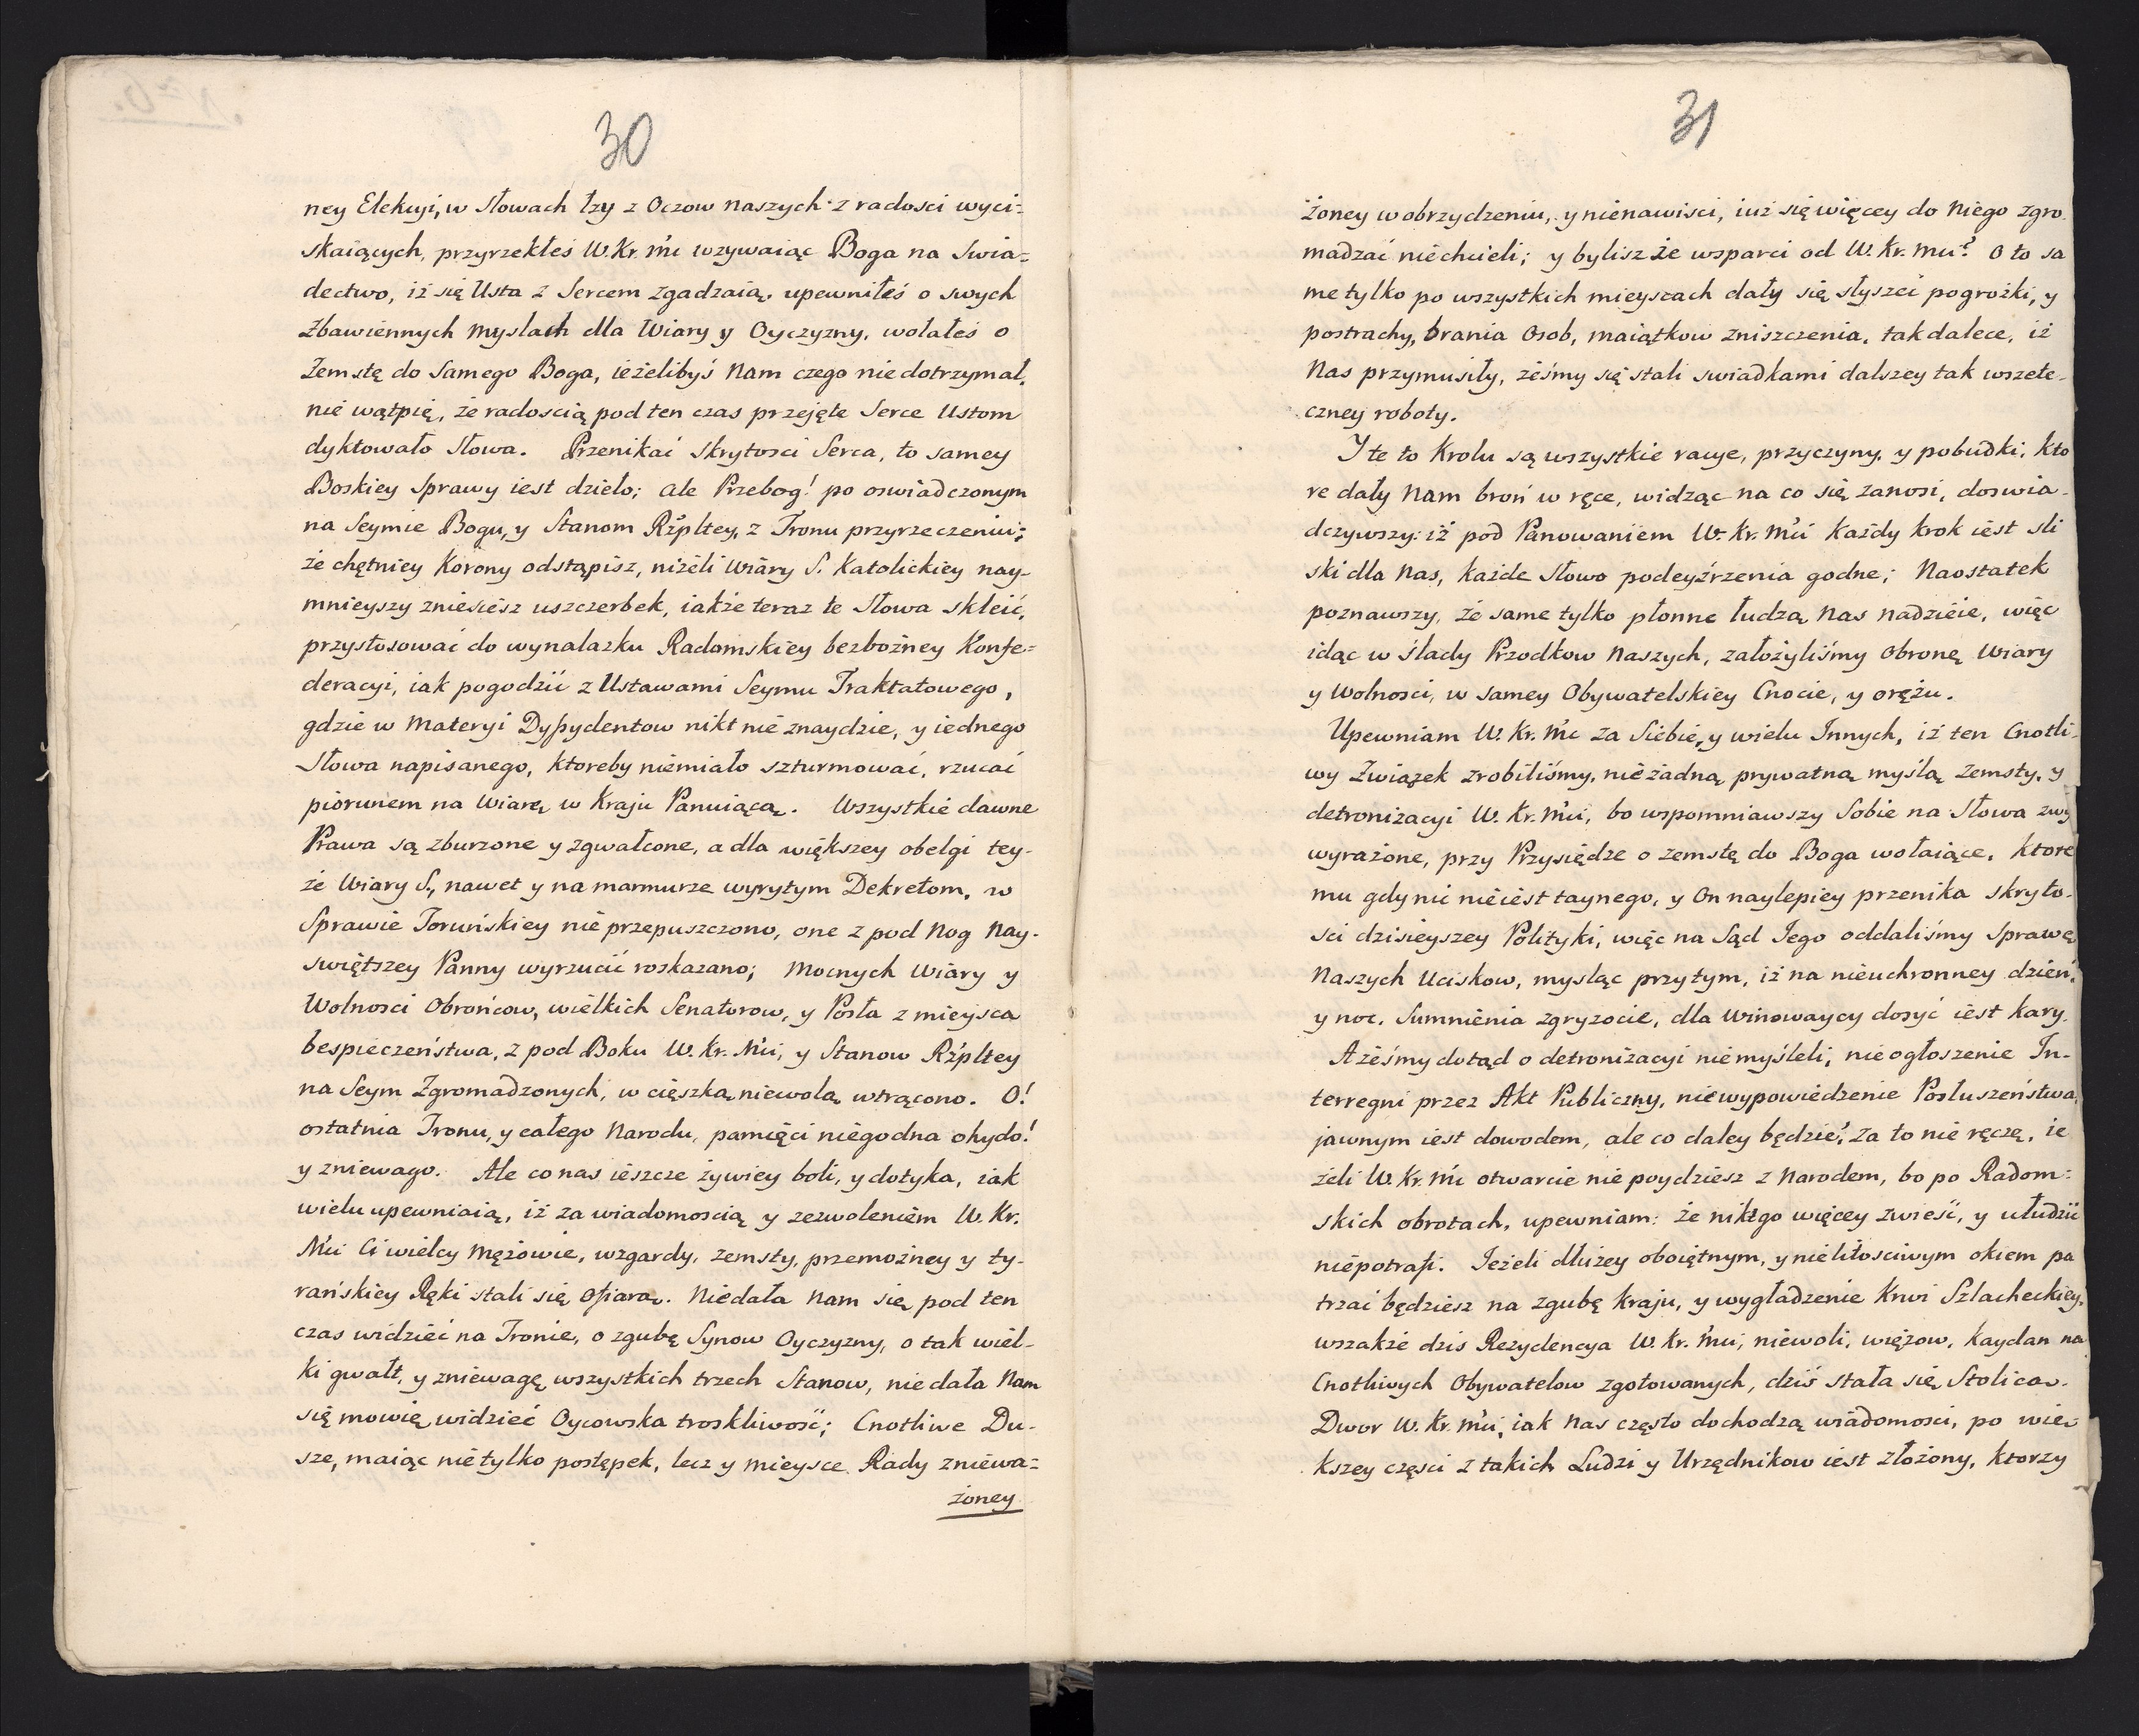 30
ney Elekcyi, w Słowach łzy z Oczow naszych z radosci wyci=
skaiących, przyrzekłeś W. Kr. Mć wzywaiąc Boga na Swia=
dectwo, iż się Usta z Sercem zgadzaią, upewniłeś o swych
Zbawiennych myslach dla Wiary y Oyczyzny, wołałeś o
Zemstę do Samego Boga, ieżelibyś Nam czego nie dotrzymał,
nie wątpię, że radoscią pod ten czas przejęte Serce Ustom
dyktowało Słowa. Przenikać skrytosci Serca, to samey
Boskiey Sprawy iest dzieło; ale Przebog! po oswiadczonym
na Seymie Bogu, y Stanom Rżpltey, z Tronu przyrzeczeniu;
że chętniey Korony odstąpisz, niżeli Wiary S. Katolickiey nay-
mnieyszy zniesiesz uszczerbek, iakże teraz te Słowa skleić,
przystosować do wynalazku Radomskiey bezbożney Konfe=
deracyi, iak pogodzić z Ustawami Seymu Traktatowego,
gdzie w Materyi Dyssydentow nikt nie znaydzie, y iednego
Słowa napisanego, ktoreby niemiało szturmować, rzucać
piorunem na Wiarę w Kraju Panuiącą. Wszystkie dawne
Prawa są zburzone y zgwałcone, a dla większey obelgi tey-
że Wiary S., nawet y na marmurze wyrytym Dekretom, w
Sprawie Toruńskiey nie przepuszczono, one z pod Nog Nay-
swiętszey Panny wyrzucić roskazano; Mocnych Wiary y
Wolnosci Obrońcow, wielkich Senatorow, y Posła z mieysca
bespieczeństwa, z pod Boku W. Kr. Mći, y Stanow Rżpltey
na Seym Zgromadzonych, w cięszką niewolą wtrącono. O!
ostatnia Tronu, y całego Narodu, pamięci niegodna ohydo!
y zniewago. Ale co nas ieszcze żywiey boli, y dotyka, iak
wielu upewniaią, iż za wiadomoscią y zezwoleniem W. Kr.
Mći Ci wielcy Mężowie, wzgardy, zemsty, przemożney y ty-
rańskiey Ręki stali się ofiarą. Niedała Nam się pod ten
czas widzieć na Tronie, o zgubę Synow Oyczyzny, o tak wiel-
ki gwałt, y zniewagę wszystkich trzech Stanow, nie dała Nam
się mowię widzieć Oycowska troskliwość; Cnotliwe Du-
sze, maiąc nietylko postępek, lecz y mieysce Rady zniewa=
żoney
31
żoney w obrzydzeniu, y nienawisci, iuż się więcey do niego zgro
madzać niechcieli; y byliszże wsparci od W. Kr. Mći? O to sa
me tylko po wszystkich mieyscach dały się słyszeć pogrożki, y
postrachy, brania Osob, maiątkow zniszczenia, tak dalece, iż
Nas przymusiły, żeśmy się stali swiadkami dalszey tak wszete-
czney roboty.
Y te to Krolu są wszystkie racye, przyczyny, y pobudki, kto
re dały Nam broń w ręce, widząc na co się zanosi, doswia-
dczywszy: iż pod Panowaniem W. Kr. Mći Każdy krok iest sli
ski dla Nas, każde Słowo podeyźrzenia godne; Naostatek
poznawszy, że same tylko płonne łudzą Nas nadzieie, więc
idąc w ślady Przodkow Naszych, założyliśmy Obronę Wiary
y Wolnosci, w samey Obywatelskiey Cnocie, y orężu.
Upewniam W. Kr. Mć za Siebie, y wielu Innych, iż ten Cnotli-
wy Związek zrobiliśmy, nie żadną prywatną myślą zemsty, y
detronizacyi W. Kr. Mći, bo wspomniawszy Sobie na Słowa zwy
wyrażone, przy Przysiędze o zemstę do Boga wołaiące, Ktore
mu gdy nic nieiest taynego, y On naylepiey przenika skryto-
sci dzisieyszey Polityki, więc na Sąd Jego oddaliśmy Sprawę
Naszych Uciskow, mysląc przytym, iż na nieuchronney dzień,
y noc, Sumnienia zgryzocie, dla winowaycy dosyć iest kary.
A żeśmy dotąd o detronizacyi niemyśleli, nie ogłoszenie In-
terregni przez Akt Publiczny, niewypowiedzenie Posłuszeństwa,
jawnym iest dowodem, ale co daley będzie? za to nie ręczę, ie
żeli W. Kr. Mć otwarcie nie poydziesz z Narodem, bo po Radom=
skich obrotach, upewniam: że nikogo więcey zwieść, y ułudzić
niepotrafi. Jeżeli dłużey oboiętnym, y nielitosciwym okiem pa
trzać będziesz na zgubę Kraju, y wygładzenie Krwi Szlacheckiey,
wszakże dzis Rezydencya W. Kr. Mći, niewoli, więzow, kaydan na
Cnotliwych Obywatelow zgotowanych, dziś stała się Stolicą.
Dwor W. Kr. Mći, iak Nas często dochodzą wiadomosci, po wię
kszey częsci z takich Ludzi y Urzędnikow iest złożony, ktorzy